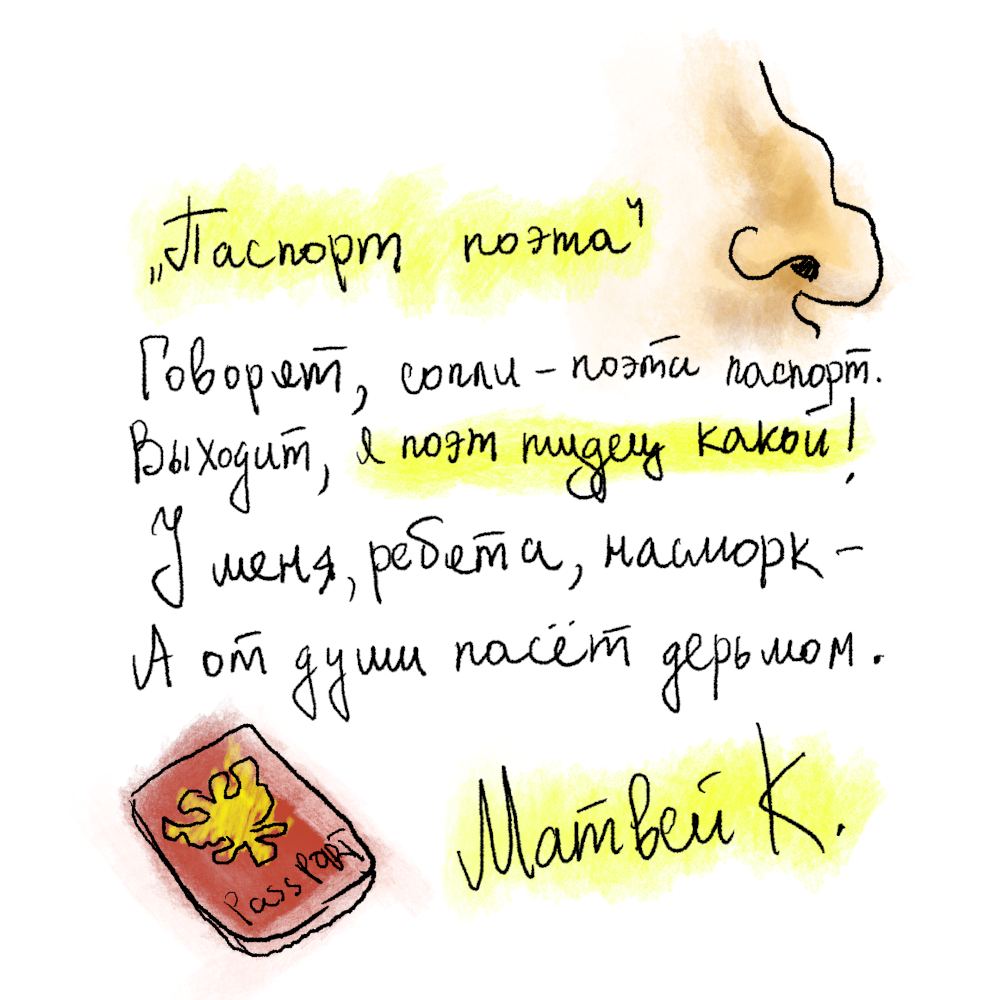 „Паспорт поэта“
Говорят, сопли – поэта паспорт.
Выходит, я поэт пиздец какой!
У меня, ребята, насморк –
А от души пасёт дерьмом.
Матвей К.
PassPORT